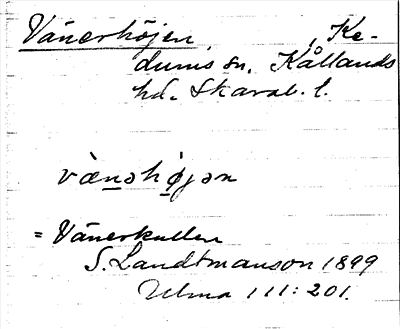 Vänerhöjen, Ke-
dums sn. Kållands
hd. Skarab. l.
vä̀nəhö̀jən
= Vänerkullen
S. Landtmanson 1899
Ulma 111:201.